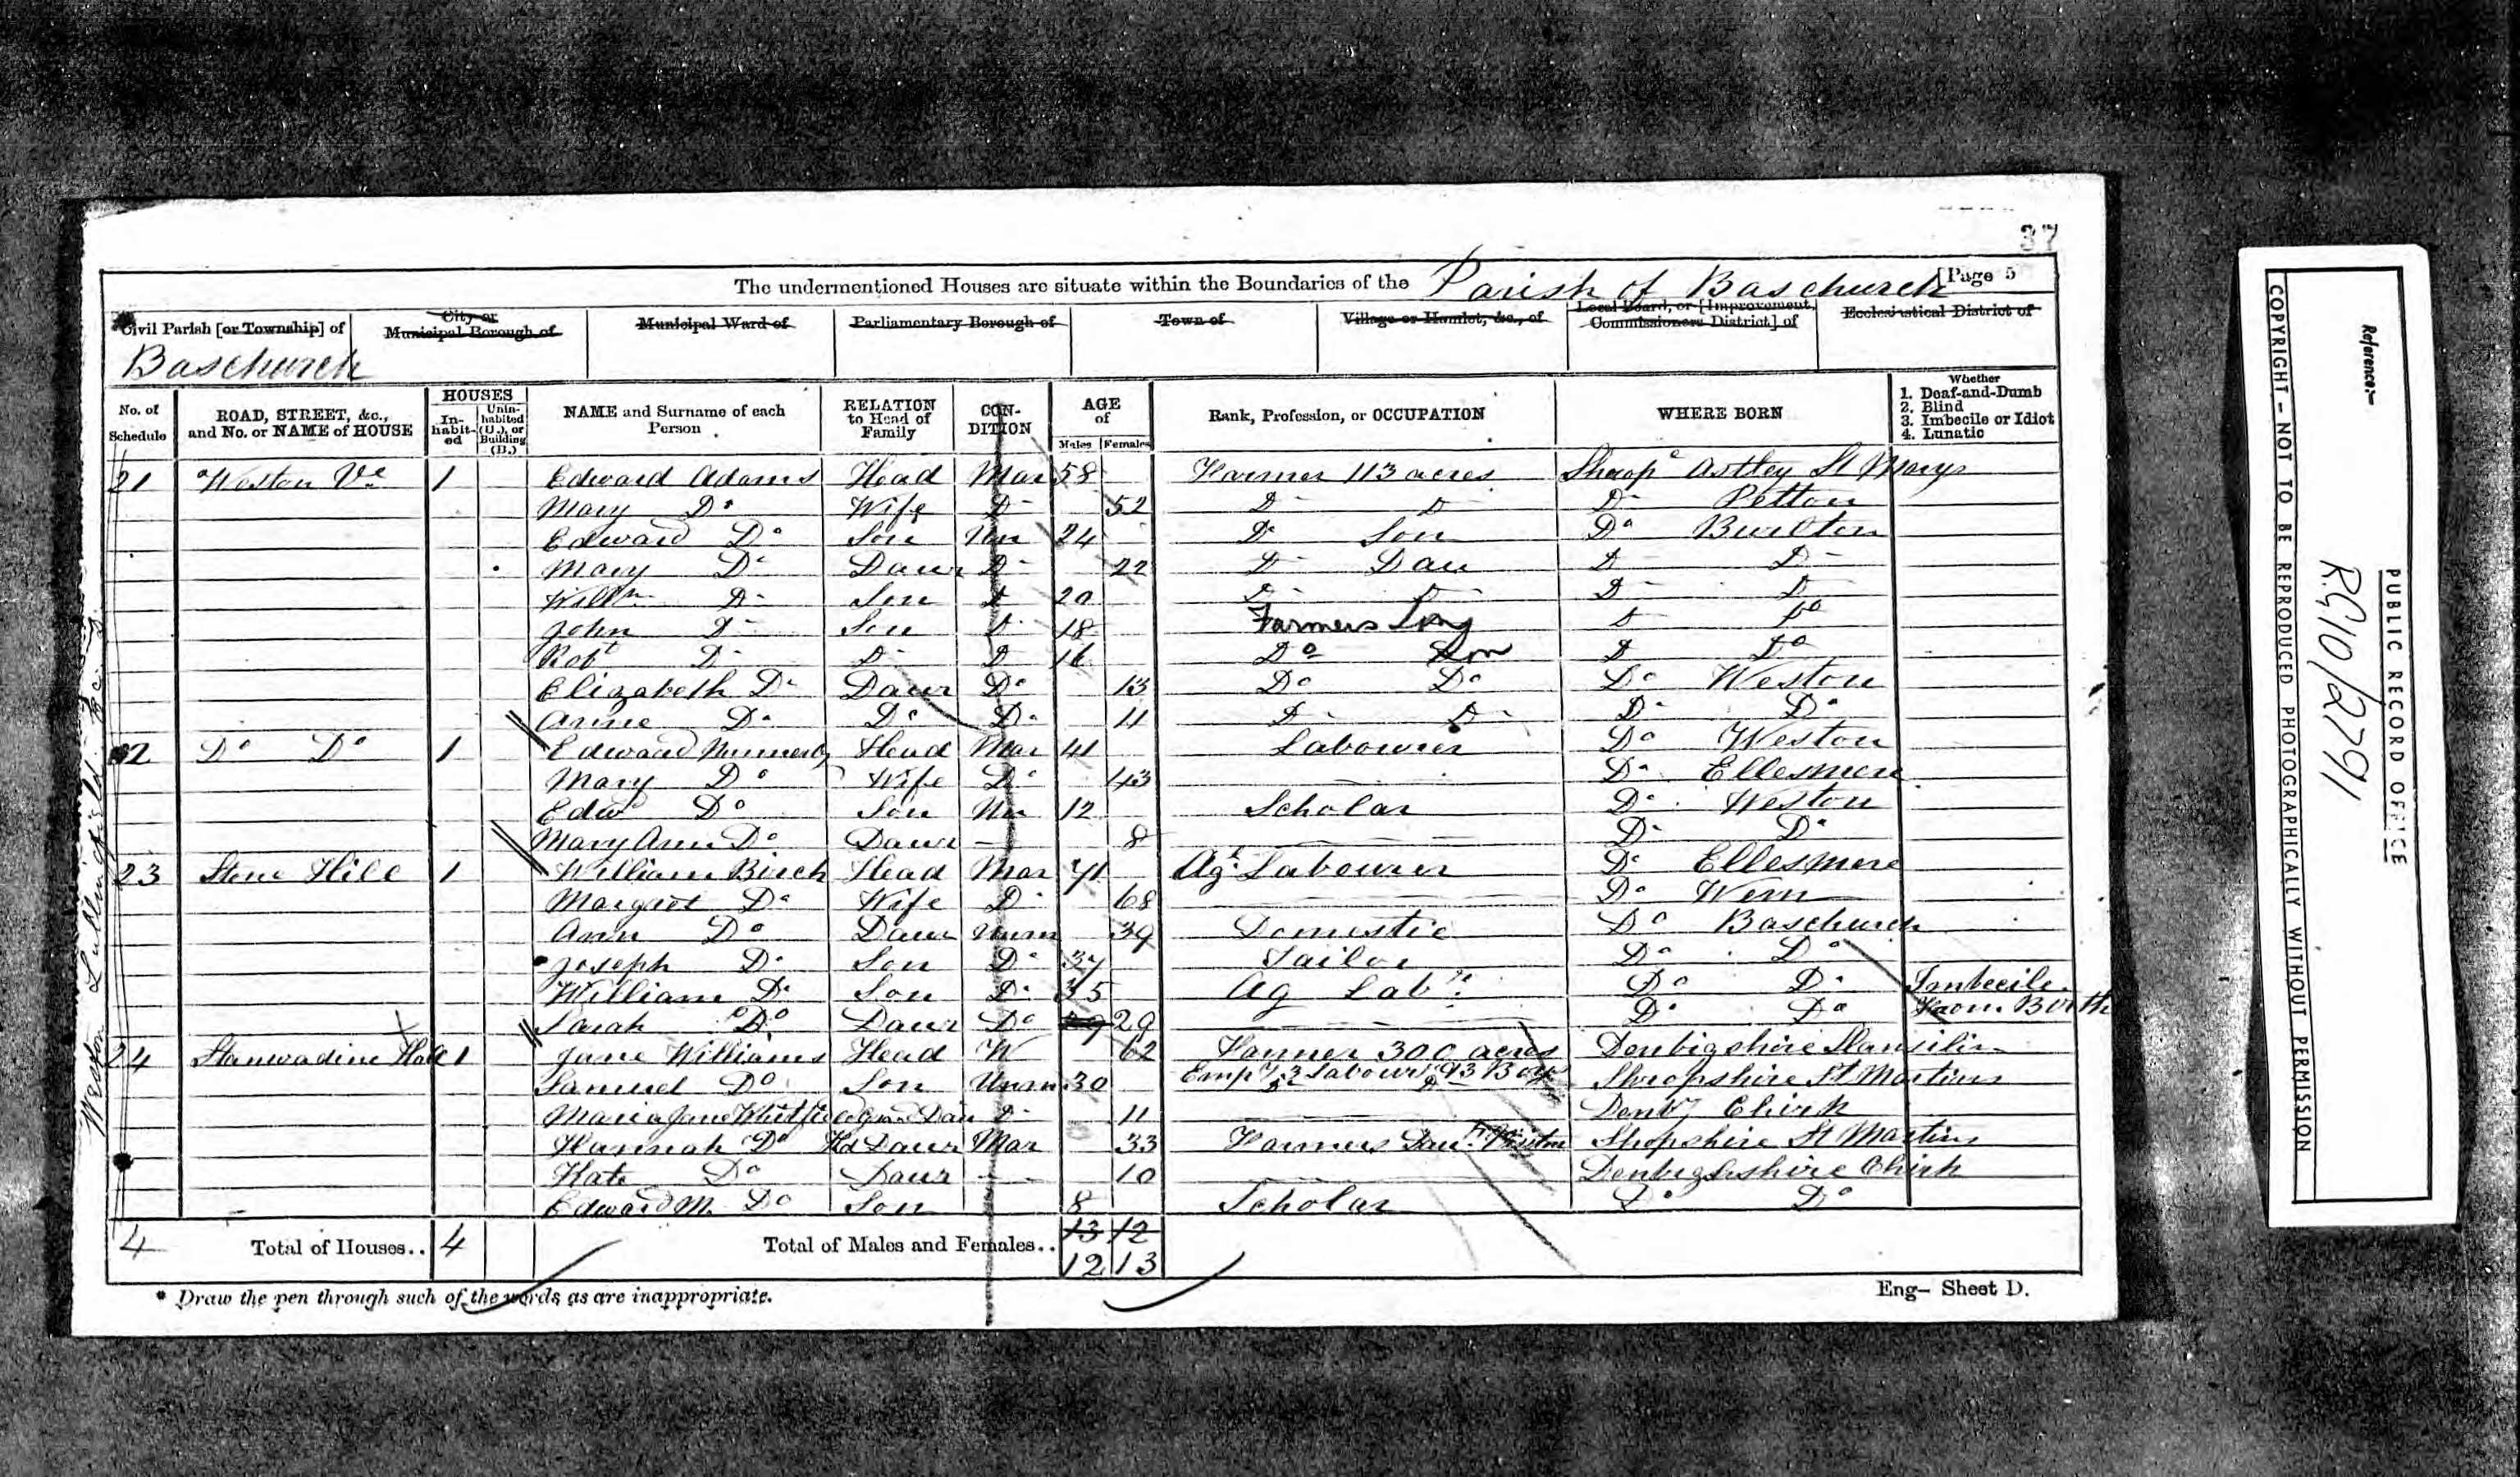 37
The undermentioned Houses are situate within the Boundaries of the Parish of Baschurch [Page 5
Civil Parish [or Township] of
City or Municipal Borough of
Municipal Ward of
Parliamentary Borough of
Town of
Village or Hamlet, &c., of
Local Board, or [Improvement Commissioners District] of
Ecclesiastical District of
Baschurch
No. of Schedule
ROAD, STREET, &c., and No. or NAME of HOUSE
HOUSES
In-habit-ed
Unin-habited (U.), or Building (B.)
NAME and Surname of each Person
RELATION to Head of Family
CON-DITION
AGE of
Males
Females
Rank, Profession, or OCCUPATION
WHERE BORN
Whether
1. Deaf-and-Dumb
2. Blind
3. Imbecile or Idiot
4. Lunatic
21 Weston 1 Edward Adams Head Mar 58 Farmer 113 acres Shrop Astley St Marys
Mary Do Wife D 52 D D D Petton
Edward Do Son Un 24 Do Son Do Burlton
Mary D Daur D 22 D Dau D D
Willm D Son D 20 D D D D
John D Son D 18 Farmers Son D Do
Robt D D D 16 Do Son D Do
Elizabeth Do Daur Do 13 Do Do Do Weston
Anne Do Do Do 11 D D D Do
22 Do Do 1 Edward Head Mar 41 Labourer Do Weston
Mary Do Wife Do 43 Do Ellesmere
Edwd Do Son Un 12 Scholar Do Weston
Mary Ann Do Daur 8 Do Do
23 Stone Hill 1 William Birch Head Mar 71 Ag. Labourer Do Ellesmere
Margret Do Wife D 68 Do Wem
Ann Do Daur Unm 39 Domestic Do Baschurch
Joseph Do Son Do 37 Tailor Do Do
William Do Son Do 35 Ag Labr Do Do Imbecile
Sarah Do Daur Do 29 Do Do From Birth
24 Stanwardine Hall 1 Jane Williams Head W 62 Farmer 300 acres Denbigshire Llansilin
Samuel Do Son Unm 30 Empg 3 Labours & 3 Boys Shropshire St Martins
Maria Jane Whitfield Grand Dau D 11 Denby Chirk
Hannah Do Daur Mar 33 Farmers Daur Visitor Shopshire St Martins
Kate Do Daur 10 Denbighshire Chirk
Edward M. Do Son 8 Scholar Do Do
4 Total of Houses.. 4 Total of Males and Females.. 13 12
12 13
* Draw the pen through such of the words as are inappropriate.
Eng- Sheet D.
Reference:-
RG10/2791
PUBLIC RECORD OFFICE
COPYRIGHT - NOT TO BE REPRODUCED PHOTOGRAPHICALLY WITHOUT PERMISSION